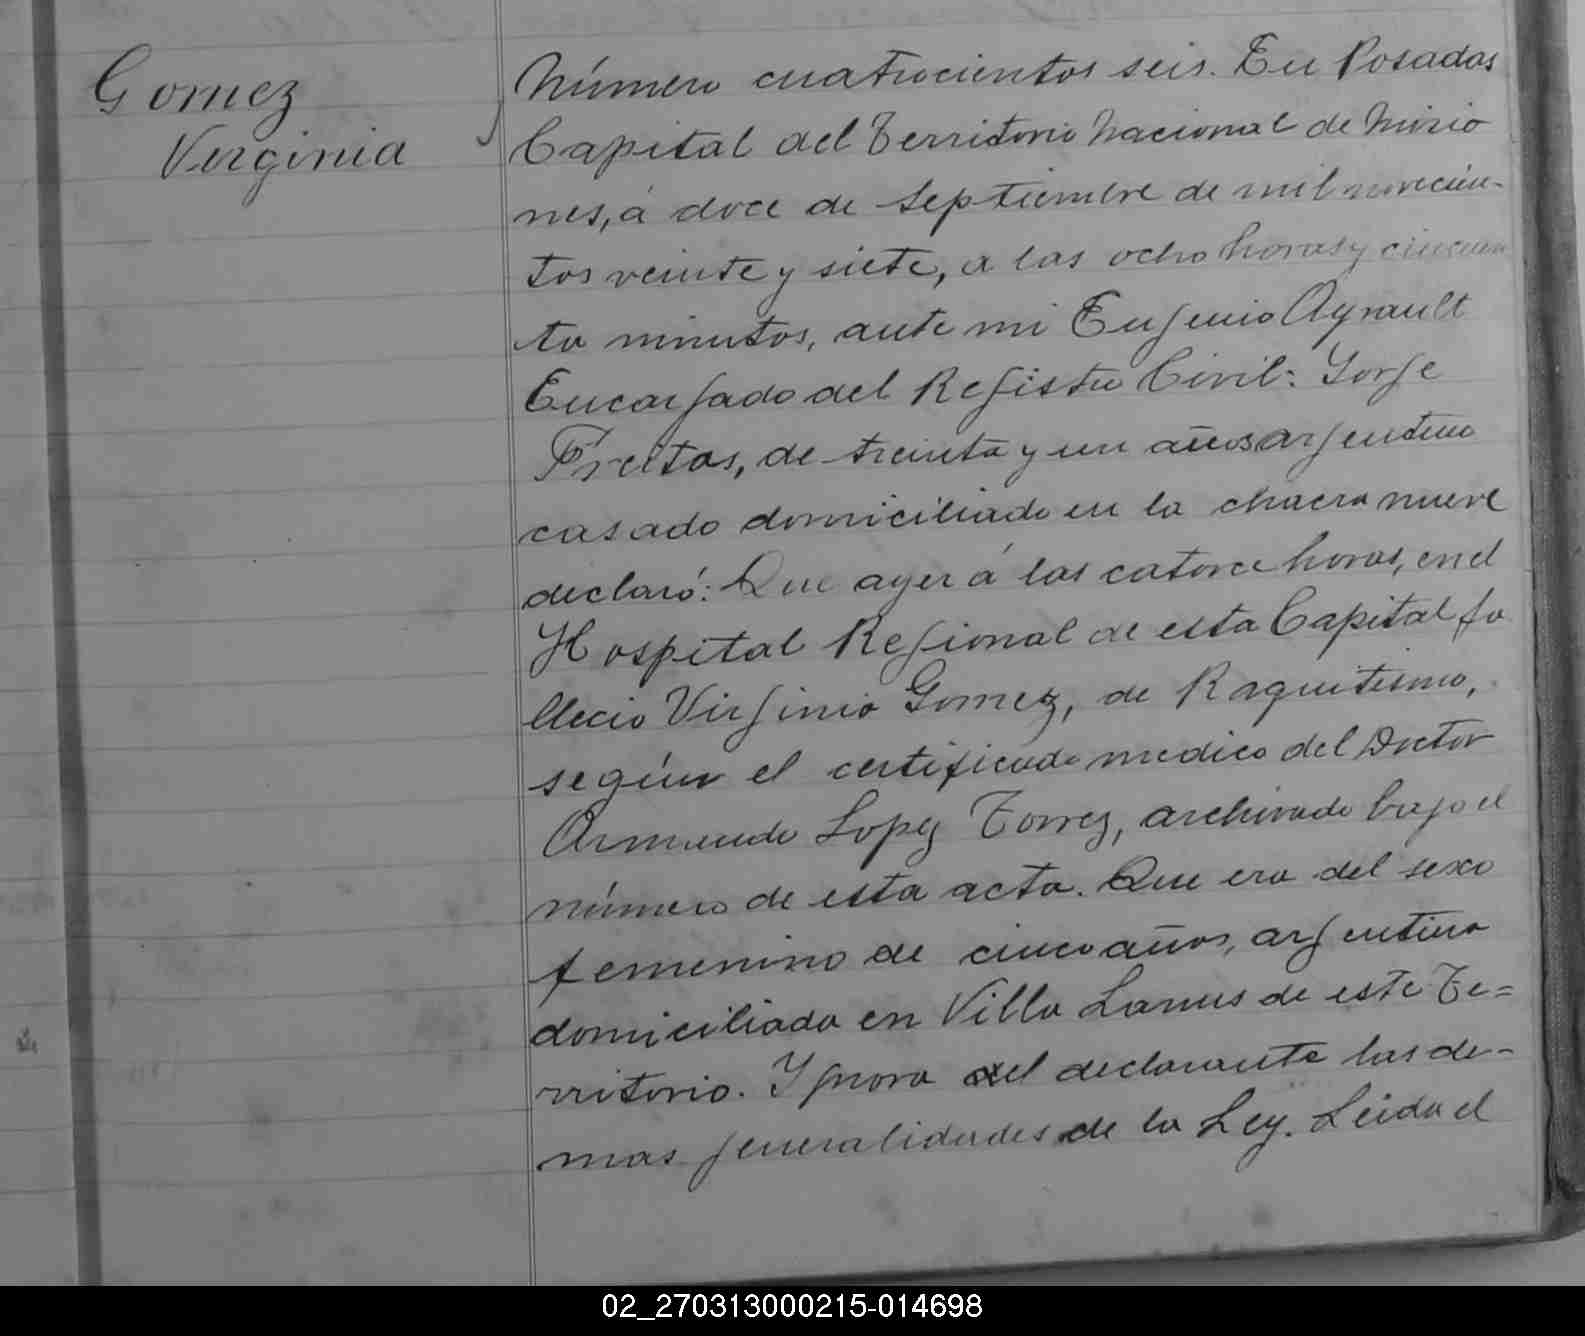 Gomez
Virginia
Número cuatrocientos seis. En Posadas
Capital del Territorio Nacional de Misio
nes, á doce de Septiembre de mil novecien-
tos veinte y siete, a las ocho horas y cincuen
ta minutos, ante mi Eugenio Ayrault
Encargado del Registro Civil: Jorje
Freitas, de treinta y un años argentino
casado domiciliado en la chacra nueve
declaró: Que ayer á las catorce horas, en el
Hospital Regional de esta Capital fa
llecio Virginia Gomez, de Raquitismo,
según el certificado medico del Doctor
Armando Lopez Torrez, archivado bajo el
número de esta acta. Que era del sexo
femenino de cinco años, argentina
domiciliada en Villa Lanus de este Te=
rritorio. Ignora el declarante las de-
mas generalidades de la Ley. Leida el
02_270313000215-014698